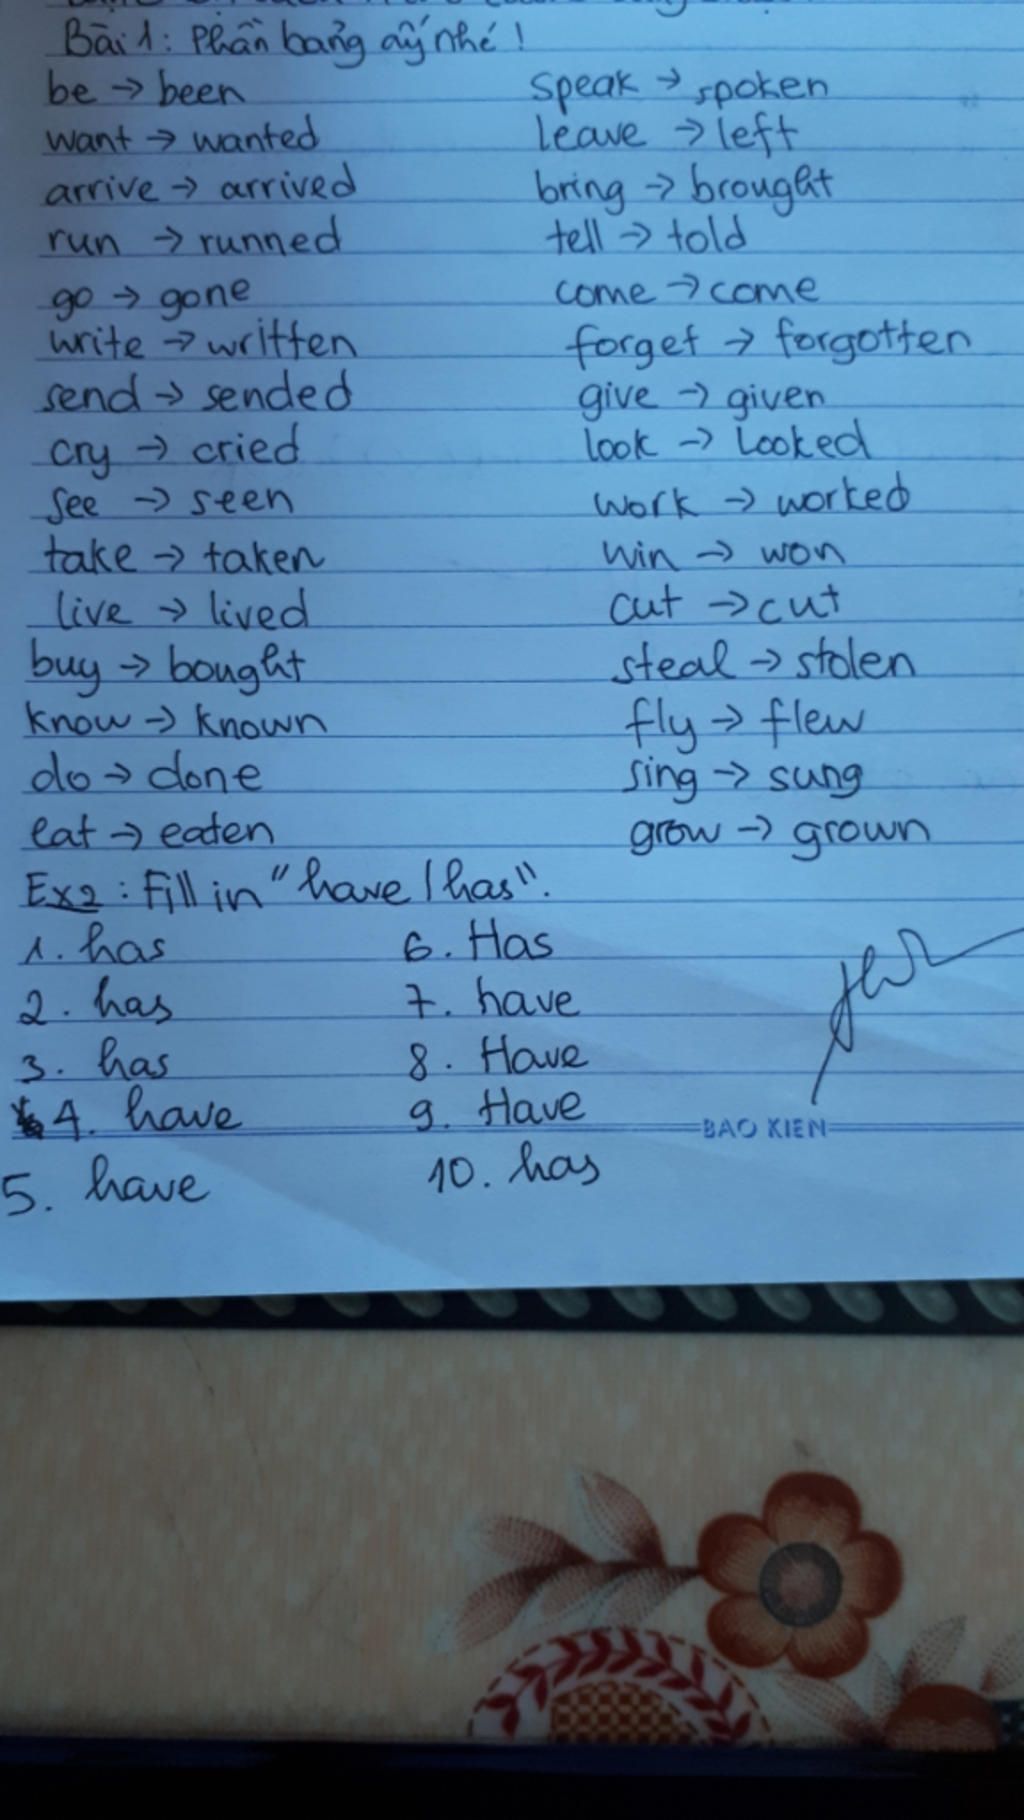 Bài 1: Phần bảng ấy nhé!
be → been
want → wanted
arrive → arrived
run → runned
go → gone
write → written
send → sended
cry → cried
see → seen
take → taken
live → lived
buy → bought
know → known
do → done
eat → eaten
speak → spoken
leave → left
bring → brought
tell → told
come → come
forget → forgotten
give → given
look → Looked
work → worked
win → won
cut → cut
steal → stolen
fly → flew
sing → sung
grow → grown
Ex2: Fill in "have / has".
1. has
2. has
3. has
4. have
5. have
6. Has
7. have
8. Have
9. Have
10. has
BAO KIEN